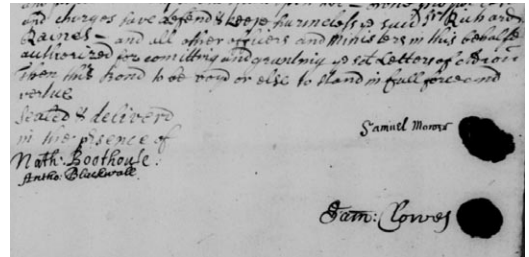 and charges save defend & keep harmeless ye said Sr Richard
Raines - and all other officers and Ministers in this behalfe
authorized for comitting and granting ye sd Letters of
then this bond to be voyd or else to stand in full force and
vertue
Sealed & deliverd
in the presence of
Nath: Boothouse.
Antho: Blackwall.
Samuel
Sam: Clowes